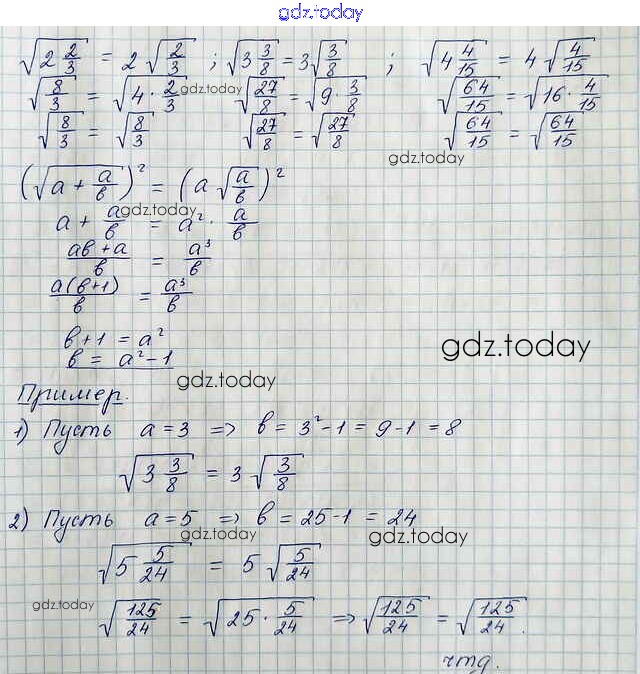 gdz.today
√(2 2/3) = 2 √(2/3) ; √(3 3/8) = 3 √(3/8) ; √(4 4/15) = 4 √(4/15)
√(8/3) = √(4 · 2/3) gdz.today √(27/8) = √(9 · 3/8) √(64/15) = √(16 · 4/15)
√(8/3) = √(8/3) √(27/8) = √(27/8) √(64/15) = √(64/15)
gdz.today
(√(a + a/в))² = (a √(a/в))²
gdz.today
a + a/в = a² · a/в
(aв + a)/в = a³/в
a(в+1)/в = a³/в
в+1 = a²
gdz.today
в = a² - 1
gdz.today
Пример.
1) Пусть a = 3 => в = 3² - 1 = 9 - 1 = 8
√(3 3/8) = 3 √(3/8)
2) Пусть a = 5 => в = 25 - 1 = 24
gdz.today gdz.today
√(5 5/24) = 5 √(5/24)
gdz.today
√(125/24) = √(25 · 5/24) => √(125/24) = √(125/24).
чтд.